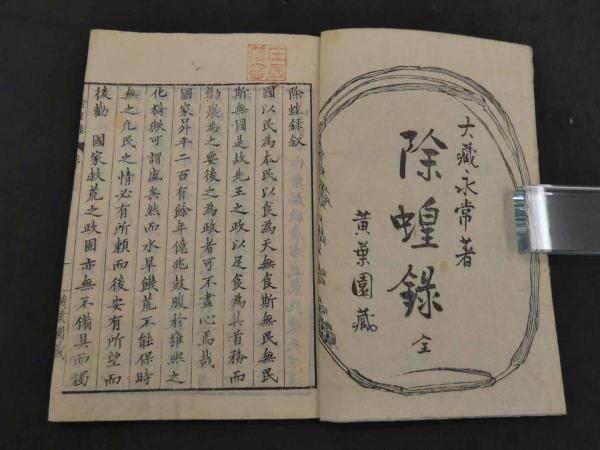 大藏永常著
除蝗録 全
黄葉園藏
除蝗録叙
國以民為本民以食為天無食斯無民無民
斯無國是故先王之政以足食為其首務而
勸農為之要後之為政者可不盡心焉哉
國家昇平二百有餘年億兆鼓腹於雍熙之
化猗歟可謂盛矣然而水旱饑荒不能保時
無之凢民之情必有所頼而後安有所望而
後勸 國家救荒之政固亦無不備具而獨